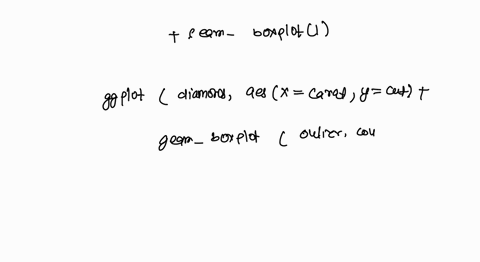 + geam_ boxplot()
ggplot ( diamond, aes(x = carat, y = cut) +
geam_ boxplot ( outlier, cou